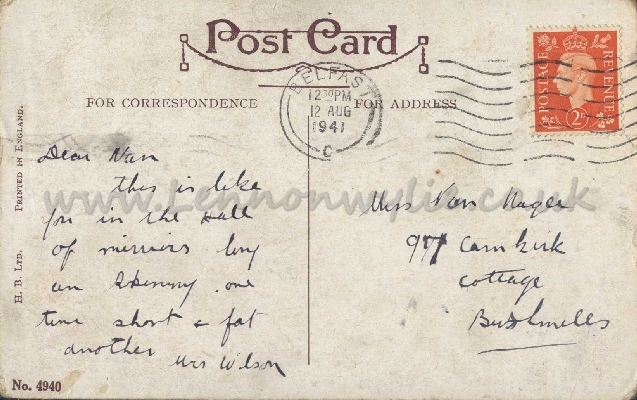 Post Card
FOR CORRESPONDENCE
FOR ADDRESS
BELFAST
12 30 PM
12 AUG
1941
C
POSTAGE
REVENUE
2D
PRINTED IN ENGLAND.
H. B. LTD.
www.Lennonwylie.co.uk
Dear Nan
this is like
you in the Hall
of mirrors long
an skinny one
time short & fat
another Mrs Wilson
Miss Nan Magee
Carnkirk
cottage
Bushmills
No. 4940